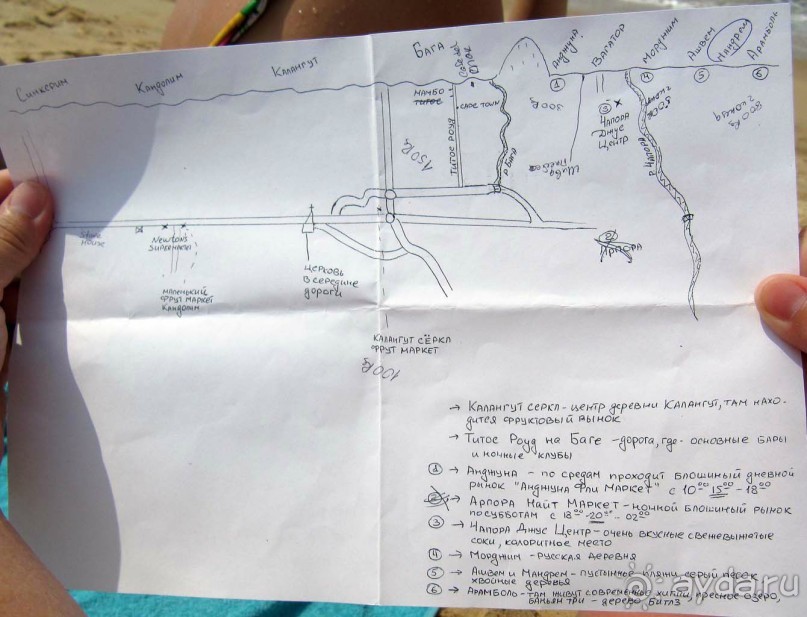 Синкерим
Кандолим
Калангут
Бага
Анджуна
Вагатор
Морджим
Ашвем
Мандрем
Арамболь
Мамбо
Титос
Cape Town
Титос Роуд
р. Бага
150 Rs
300 Rs
Чапора
Джус
Центр
р. Чапора
800 Rs
Арпора
House
Newtons
supermarket
Маленький
фрут маркет
Кандолим
Церковь
в середине
дороги
Калангут сёркл
фрут маркет
100 Rs
→ Калангут серкл - центр деревни Калангут, там нахо-
дится фруктовый рынок
→ Титос Роуд на Баге - дорога, где основные бары
и ночные клубы
1 → Анджуна - по средам проходит блошиный дневной
рынок "Анджуна Фли Маркет" с 10⁰⁰ 15⁰⁰ - 18⁰⁰
2 → Арпора Найт Маркет - ночной блошиный рынок
по субботам с 18⁰⁰ - 20⁰⁰ - 02⁰⁰
3 → Чапора Джус Центр - очень вкусные свежевыжатые
соки, колоритное место
4 → Морджим - русская деревня
5 → Ашвем и Мандрем - пустынные пляжи, серый песок
хвойные деревья
6 → Арамболь - там живут современные хиппи, пресное озеро,
баньян три - дерево Битлз
ayda.ru